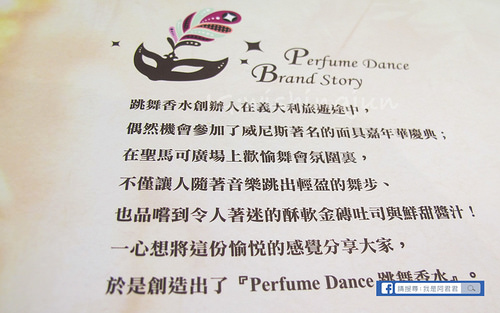 Perfume Dance
Brand Story
跳舞香水創辦人在義大利旅遊途中，
偶然機會參加了威尼斯著名的面具嘉年華慶典；
在聖馬可廣場上歡愉舞會氛圍裏，
不僅讓人隨著音樂跳出輕盈的舞步、
也品嚐到令人著迷的酥軟金磚吐司與鮮甜醬汁！
一心想將這份愉悅的感覺分享大家，
於是創造出了『Perfume Dance 跳舞香水』。
請搜尋：我是阿君君